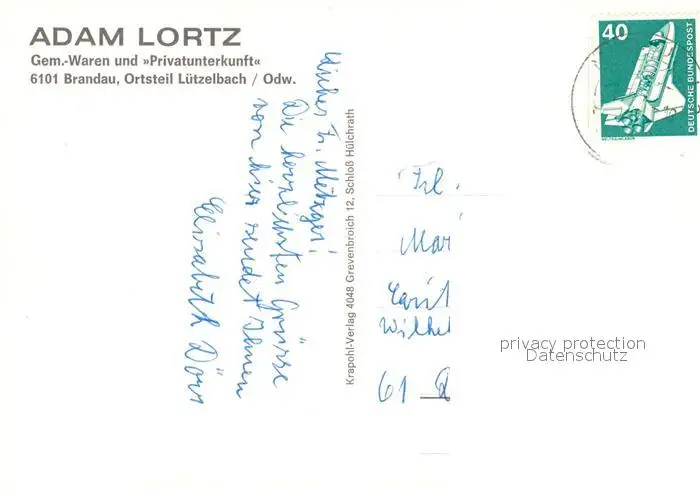 ADAM LORTZ
Gem.-Waren und »Privatunterkunft«
6101 Brandau, Ortsteil Lützelbach / Odw.
Fr. Metzger!
Die herzlichsten Grüsse
von hier sendet Ihnen
Elisabeth Dörr
Krapohl-Verlag 4048 Grevenbroich 12, Schloß Hülchrath
40
DEUTSCHE BUNDESPOST
WELTRAUMLABOR
Frl.
Mar
Wilhel
61
privacy protection
Datenschutz